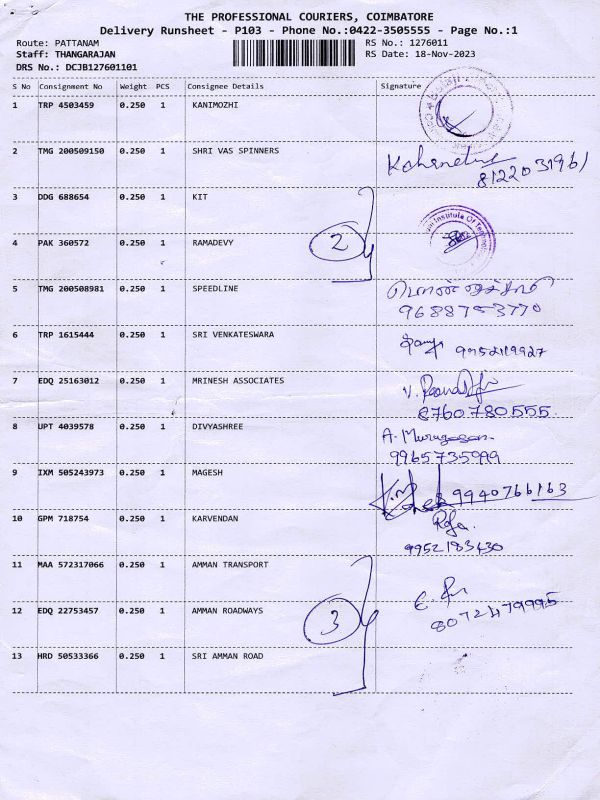 THE PROFESSIONAL COURIERS, COIMBATORE
Delivery Runsheet - P103 - Phone No.:0422-3505555 - Page No.:1
Route: PATTANAM RS No.: 1276011
Staff: THANGARAJAN RS Date: 18-Nov-2023
DRS No.: DCJB127601101
S No Consignment No Weight PCS Consignee Details Signature
1 TRP 4503459 0.250 1 KANIMOZHI
2 TMG 200509150 0.250 1 SHRI VAS SPINNERS
8122031961
3 DDG 688654 0.250 1 KIT
2
4 PAK 360572 0.250 1 RAMADEVY
Institute Of
5 TMG 200508981 0.250 1 SPEEDLINE
9688753770
6 TRP 1615444 0.250 1 SRI VENKATESWARA
7 EDQ 25163012 0.250 1 MRINESH ASSOCIATES
8760780555
8 UPT 4039578 0.250 1 DIVYASHREE
A. Murugesan
9965735999
9 IXM 505243973 0.250 1 MAGESH
9940766163
10 GPM 718754 0.250 1 KARVENDAN
Raja.
9952183430
11 MAA 572317066 0.250 1 AMMAN TRANSPORT
12 EDQ 22753457 0.250 1 AMMAN ROADWAYS
3
8072479995
13 HRD 50533366 0.250 1 SRI AMMAN ROAD